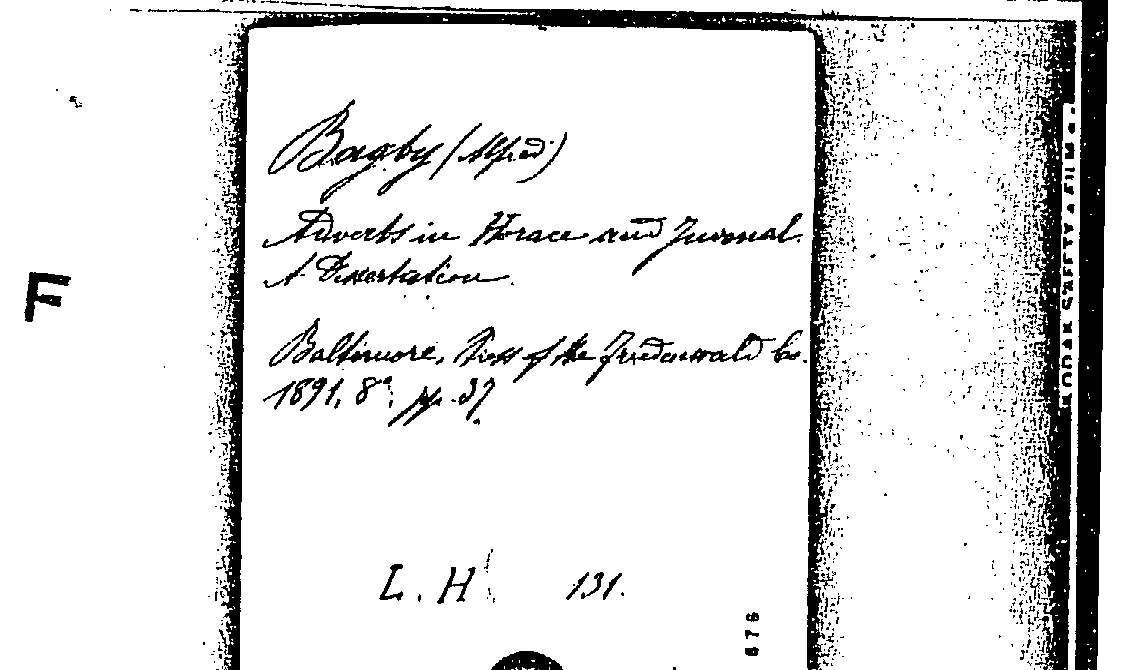 Bagby (Alfred)
Adverbs in Horace and Juvenal.
A Dissertation.
Baltimore, Press of the Friedenwald Co.
1891. 8°. pp. 37.
L. H. 131.
676
F
KODAK SAFETY FILM